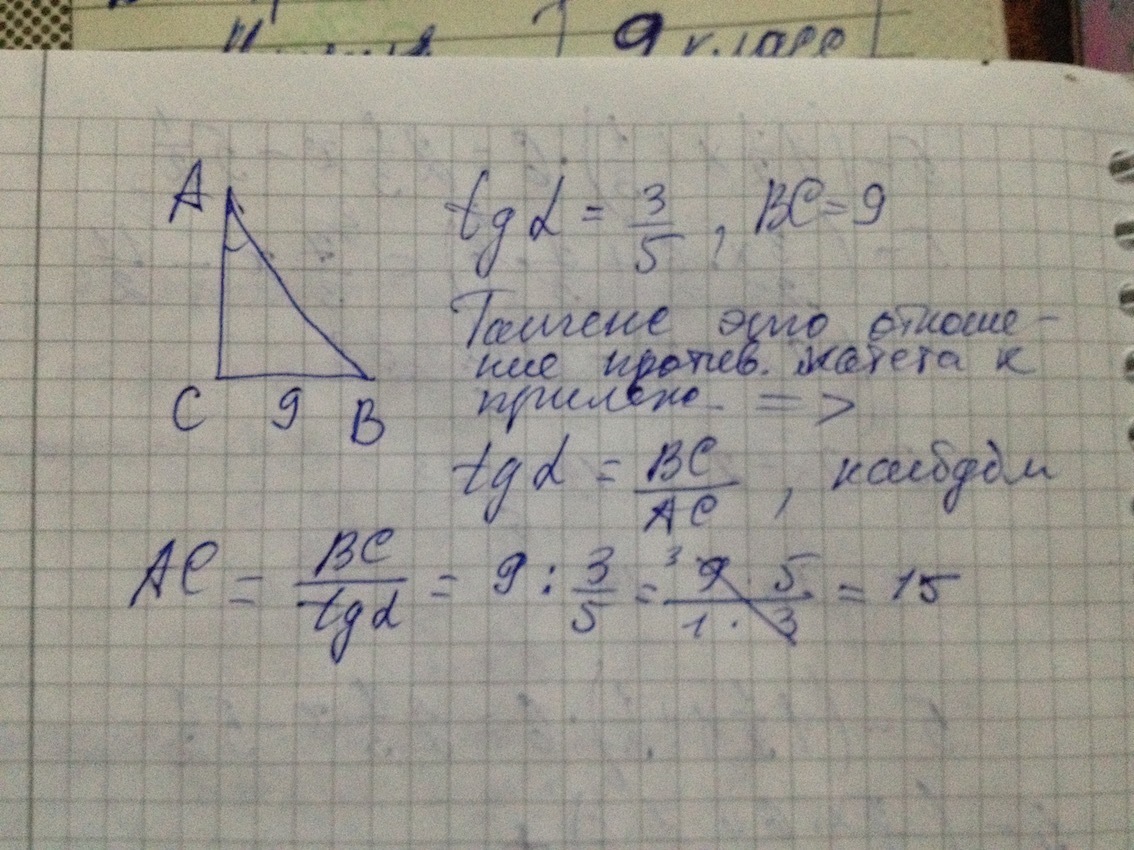 9 класс
A
C 9 B
tg α = 3/5, BC = 9
Тангенс это отноше-
ние против. катета к
прилежа. =>
tg α = BC/AC, найдём
AC = BC/tg α = 9 : 3/5 = 3 9 · 5/1 · 3 = 15